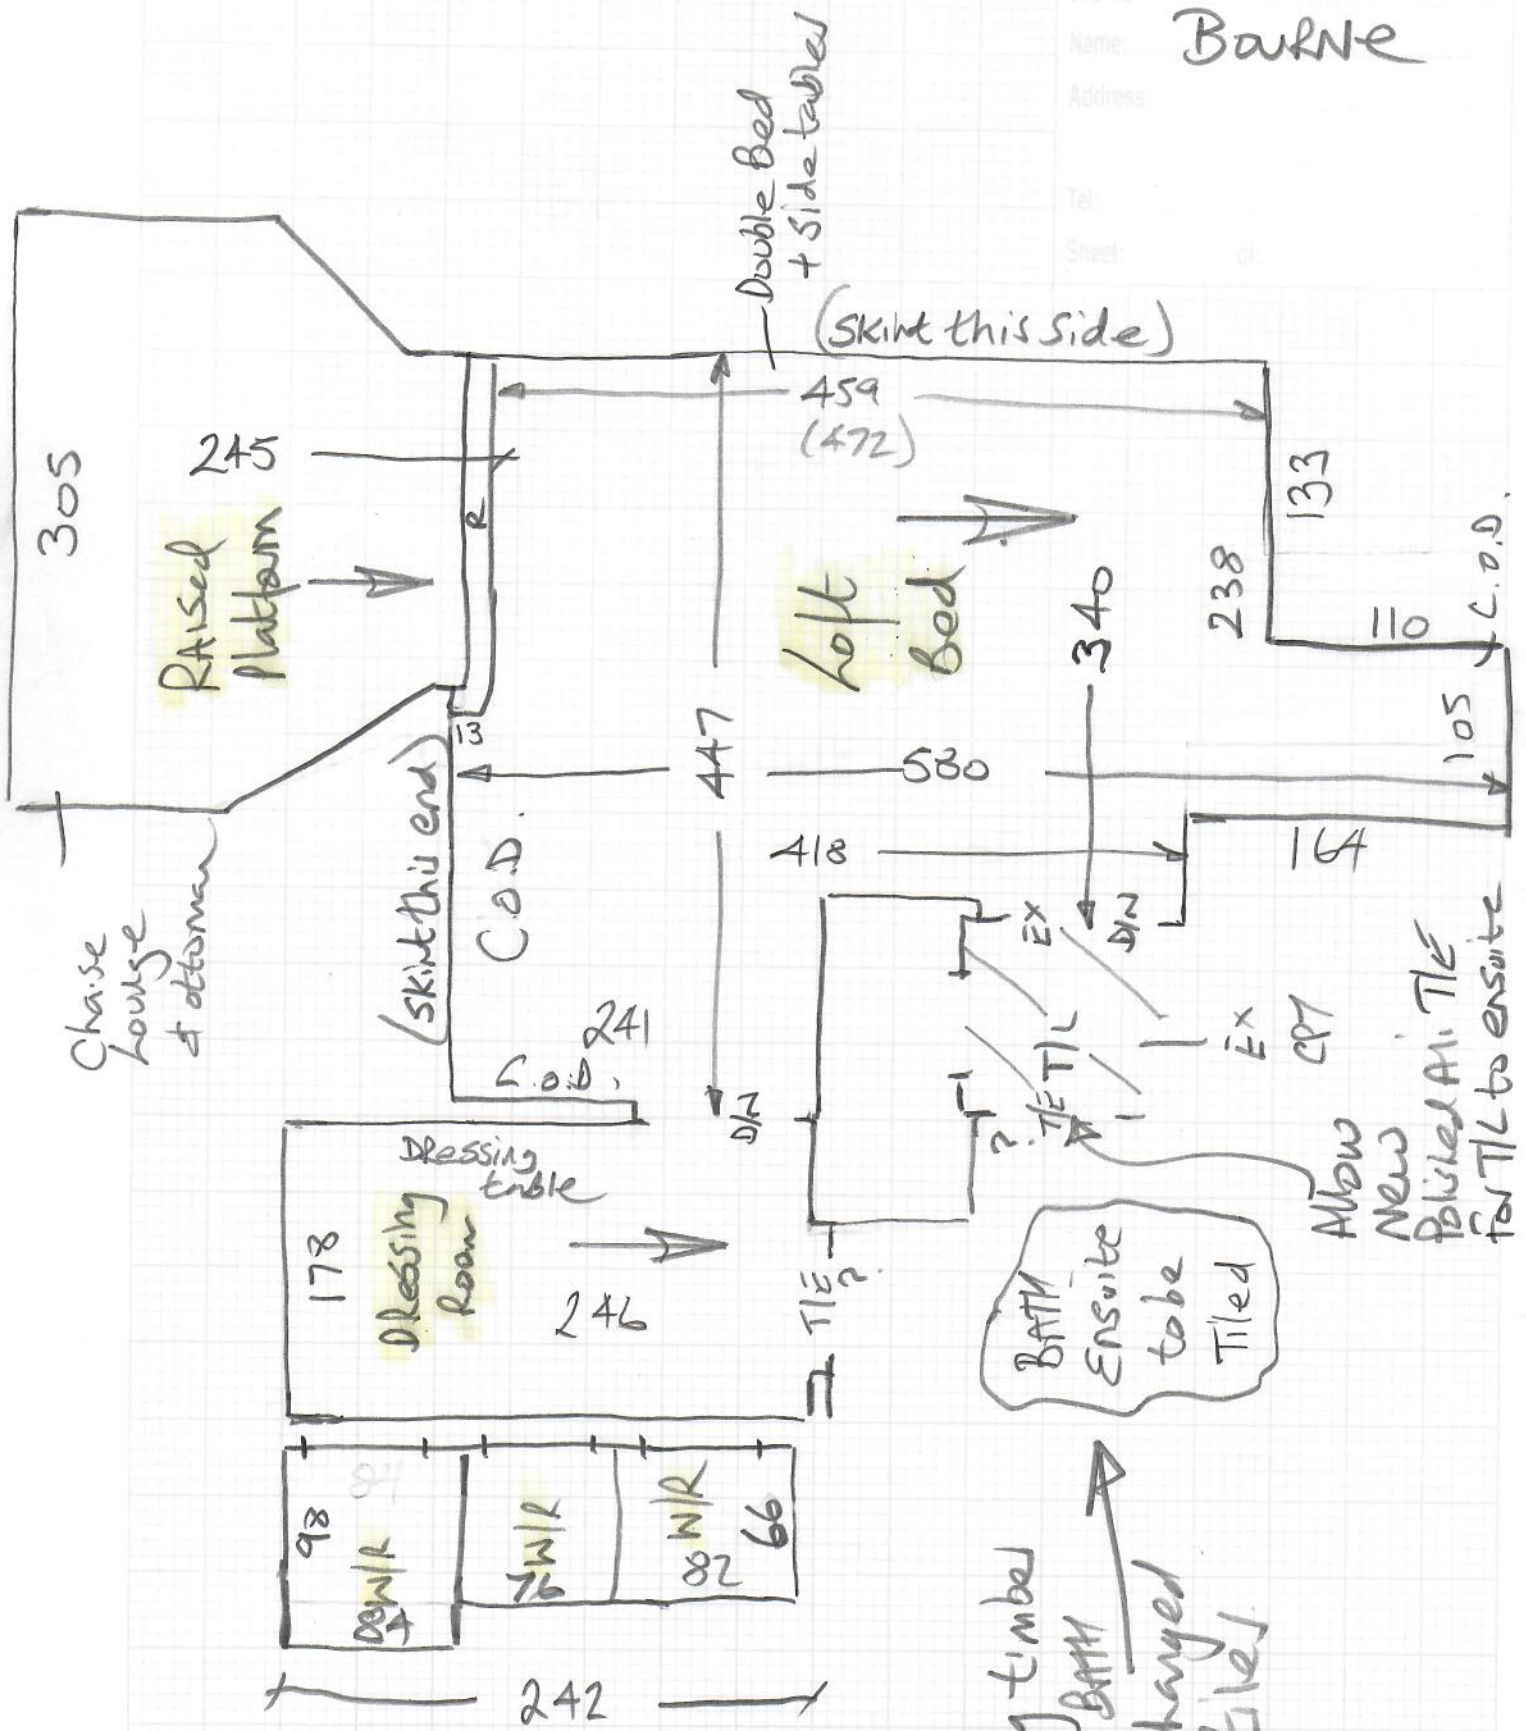 Name: Bourne
Address:
Tel:
Sheet: of:
Double Bed
+ Side tables
(Skirt this side)
305
245
RAised
Platform
R
459
(472)
133
238
110
C.O.D.
105
Loft
Bed
340
447
530
418
164
13
(Skirt this end)
C.O.D.
Chaise
Lounge
& ottoman
241
C.o.D.
D/N
EX
D/N
T/E T/L
?
EX
CPT
Allow
New
Polished Ali T/E
For T/L to ensuite
Dressing
table
178
DRessing
Room
246
T/E
?
BATH
Ensuite
to be
Tiled
98
W/R
W/R
76
W/R
82
66
242
g timber
BATH
hanged
tiles